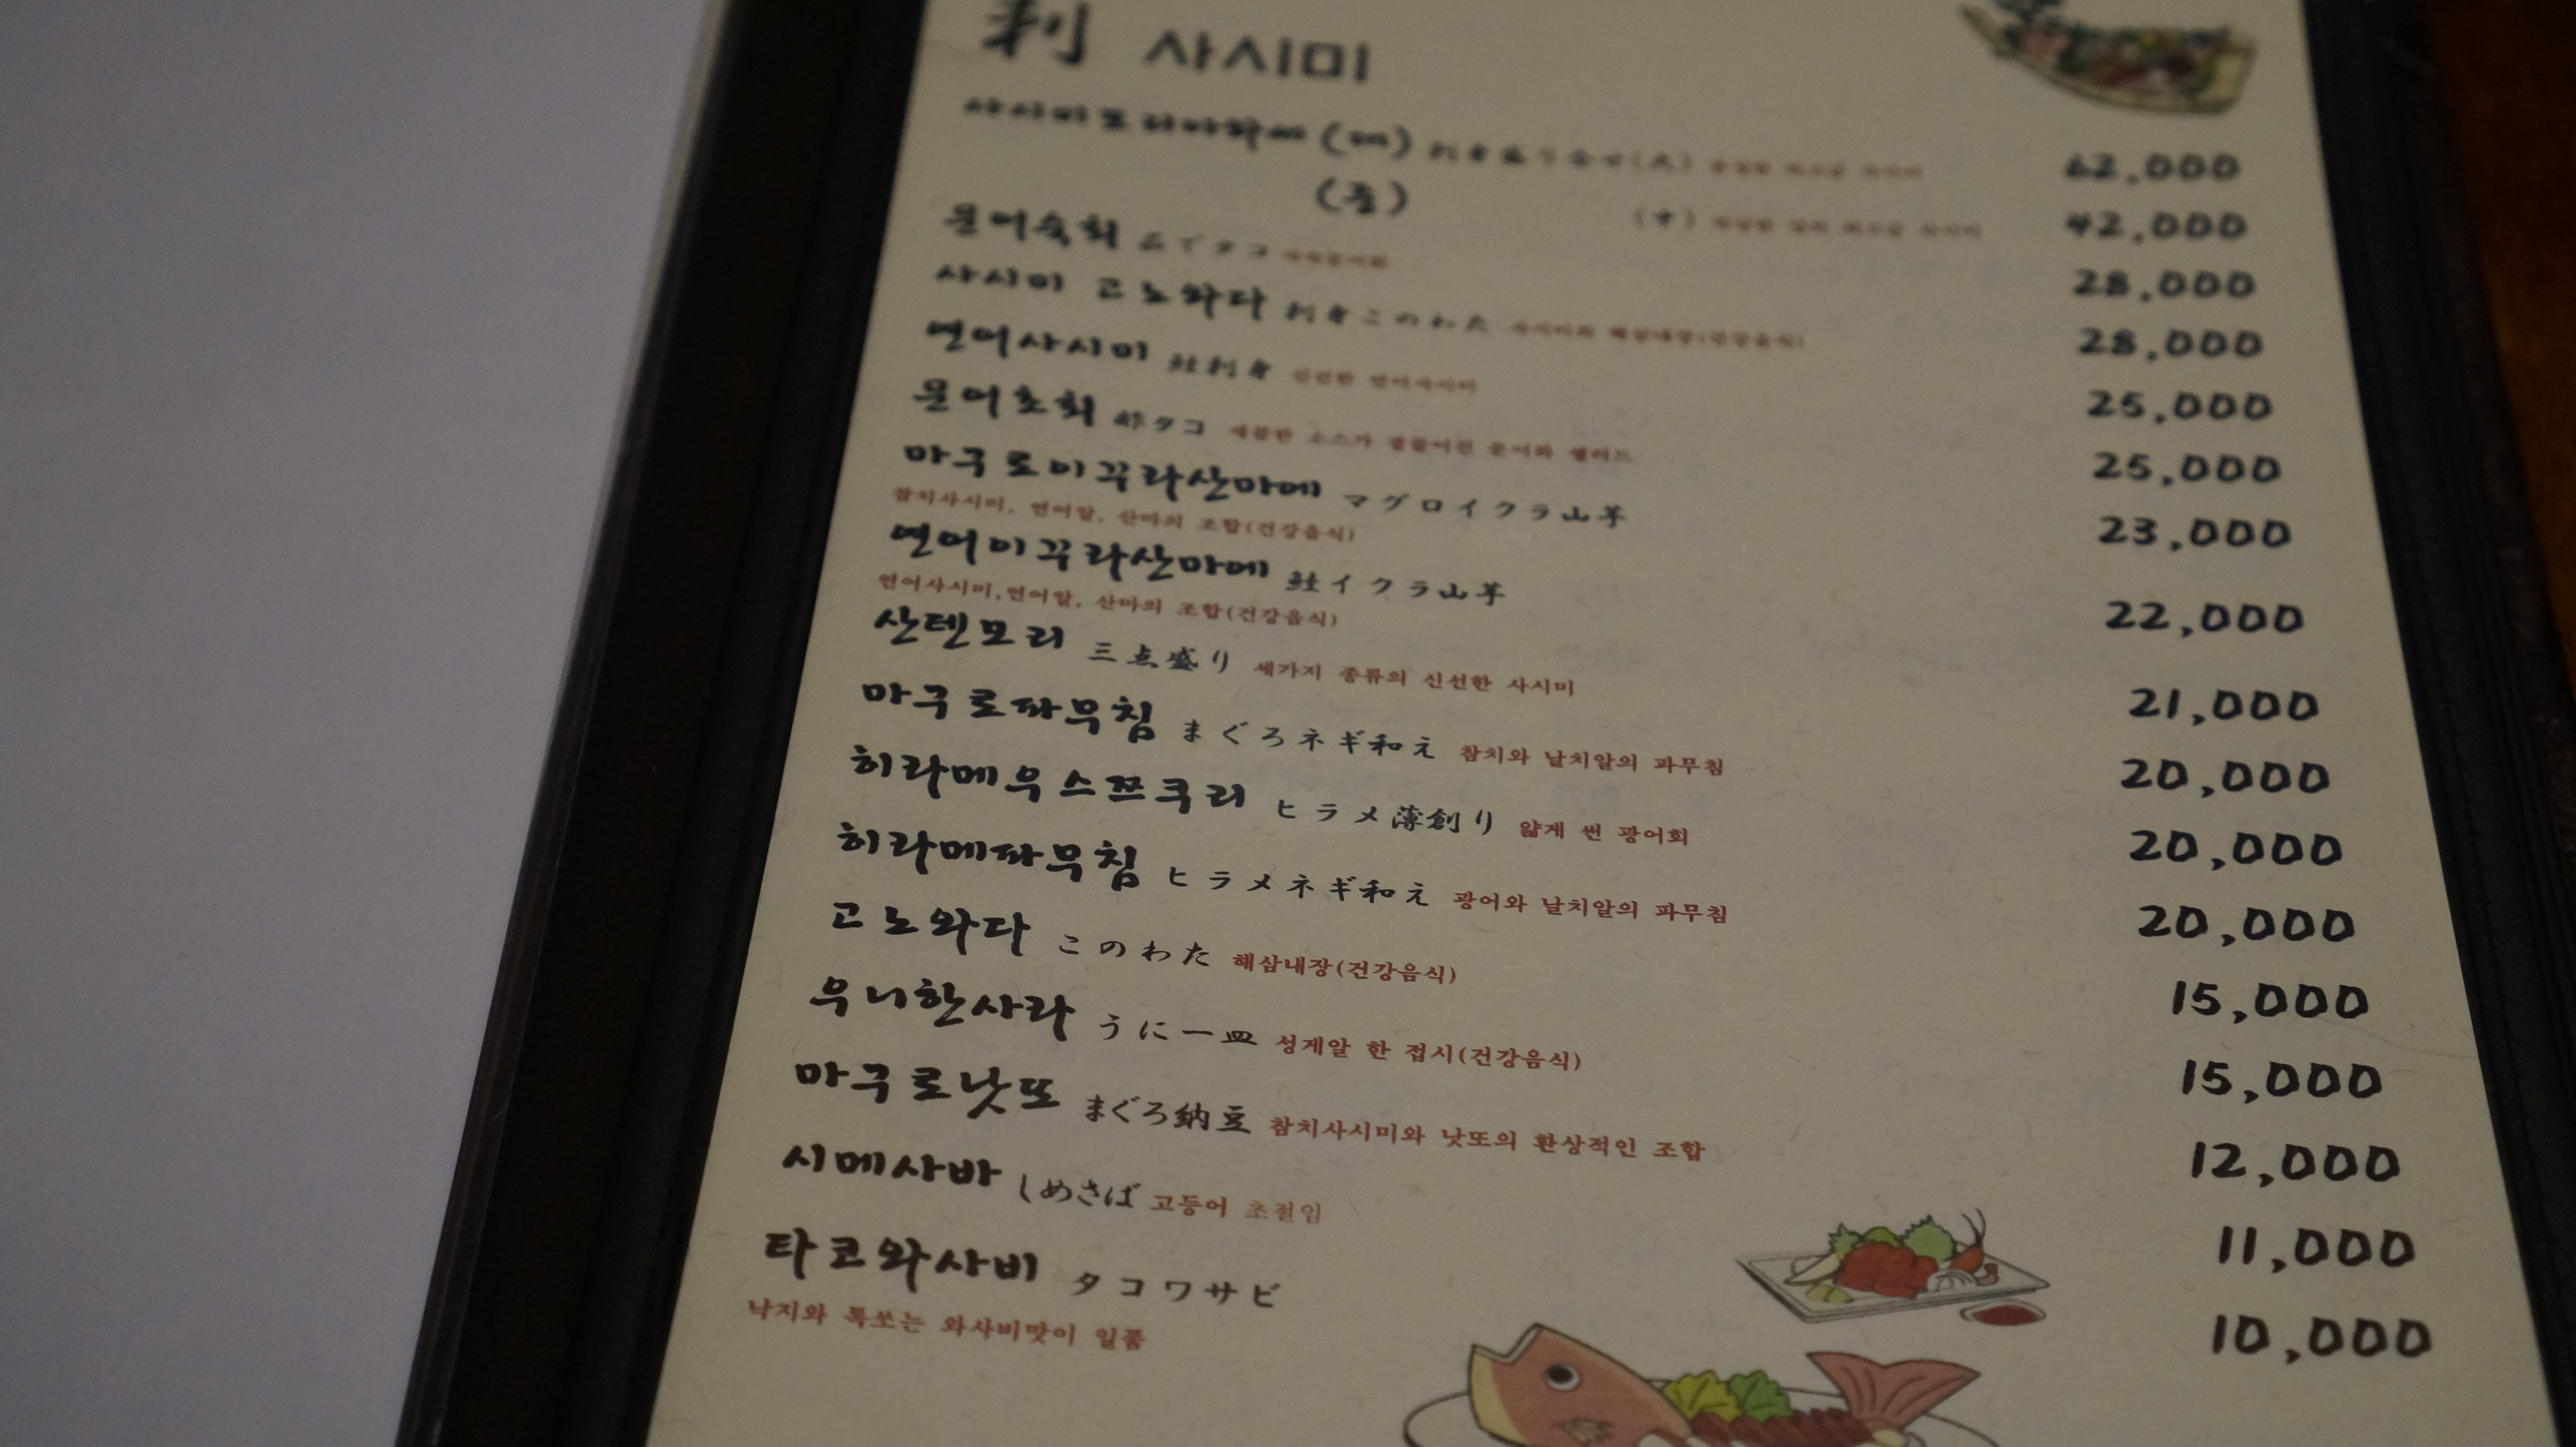 刺 사시미
사시미모리아와세 (대) 刺身盛り合せ(大) 62,000
(중) (中) 42,000
문어숙회 タコ 28,000
사시미 고노와다 刺身このわた 사시미와 해삼내장(건강음식) 28,000
연어사시미 鮭刺身 신선한 연어사시미 25,000
문어초회 酢タコ 새콤한 소스가 곁들여진 문어와 샐러드 25,000
마구로이꾸라산마에 マグロイクラ山芋 23,000
참치사시미, 연어알, 산마의 조합(건강음식)
연어이꾸라산마에 鮭イクラ山芋 22,000
연어사시미,연어알, 산마의 조합(건강음식)
산텐모리 三点盛り 세가지 종류의 신선한 사시미 21,000
마구로파무침 まぐろネギ和え 참치와 날치알의 파무침 20,000
히라메우스쯔쿠리 ヒラメ薄創り 얇게 썬 광어회 20,000
히라메파무침 ヒラメネギ和え 광어와 날치알의 파무침 20,000
고노와다 このわた 해삼내장(건강음식) 15,000
우니한사라 うに一皿 성게알 한 접시(건강음식) 15,000
마구로낫또 まぐろ納豆 참치사시미와 낫또의 환상적인 조합 12,000
시메사바 しめさば 고등어 초절임 11,000
타코와사비 タコワサビ 10,000
낙지와 톡쏘는 와사비맛이 일품